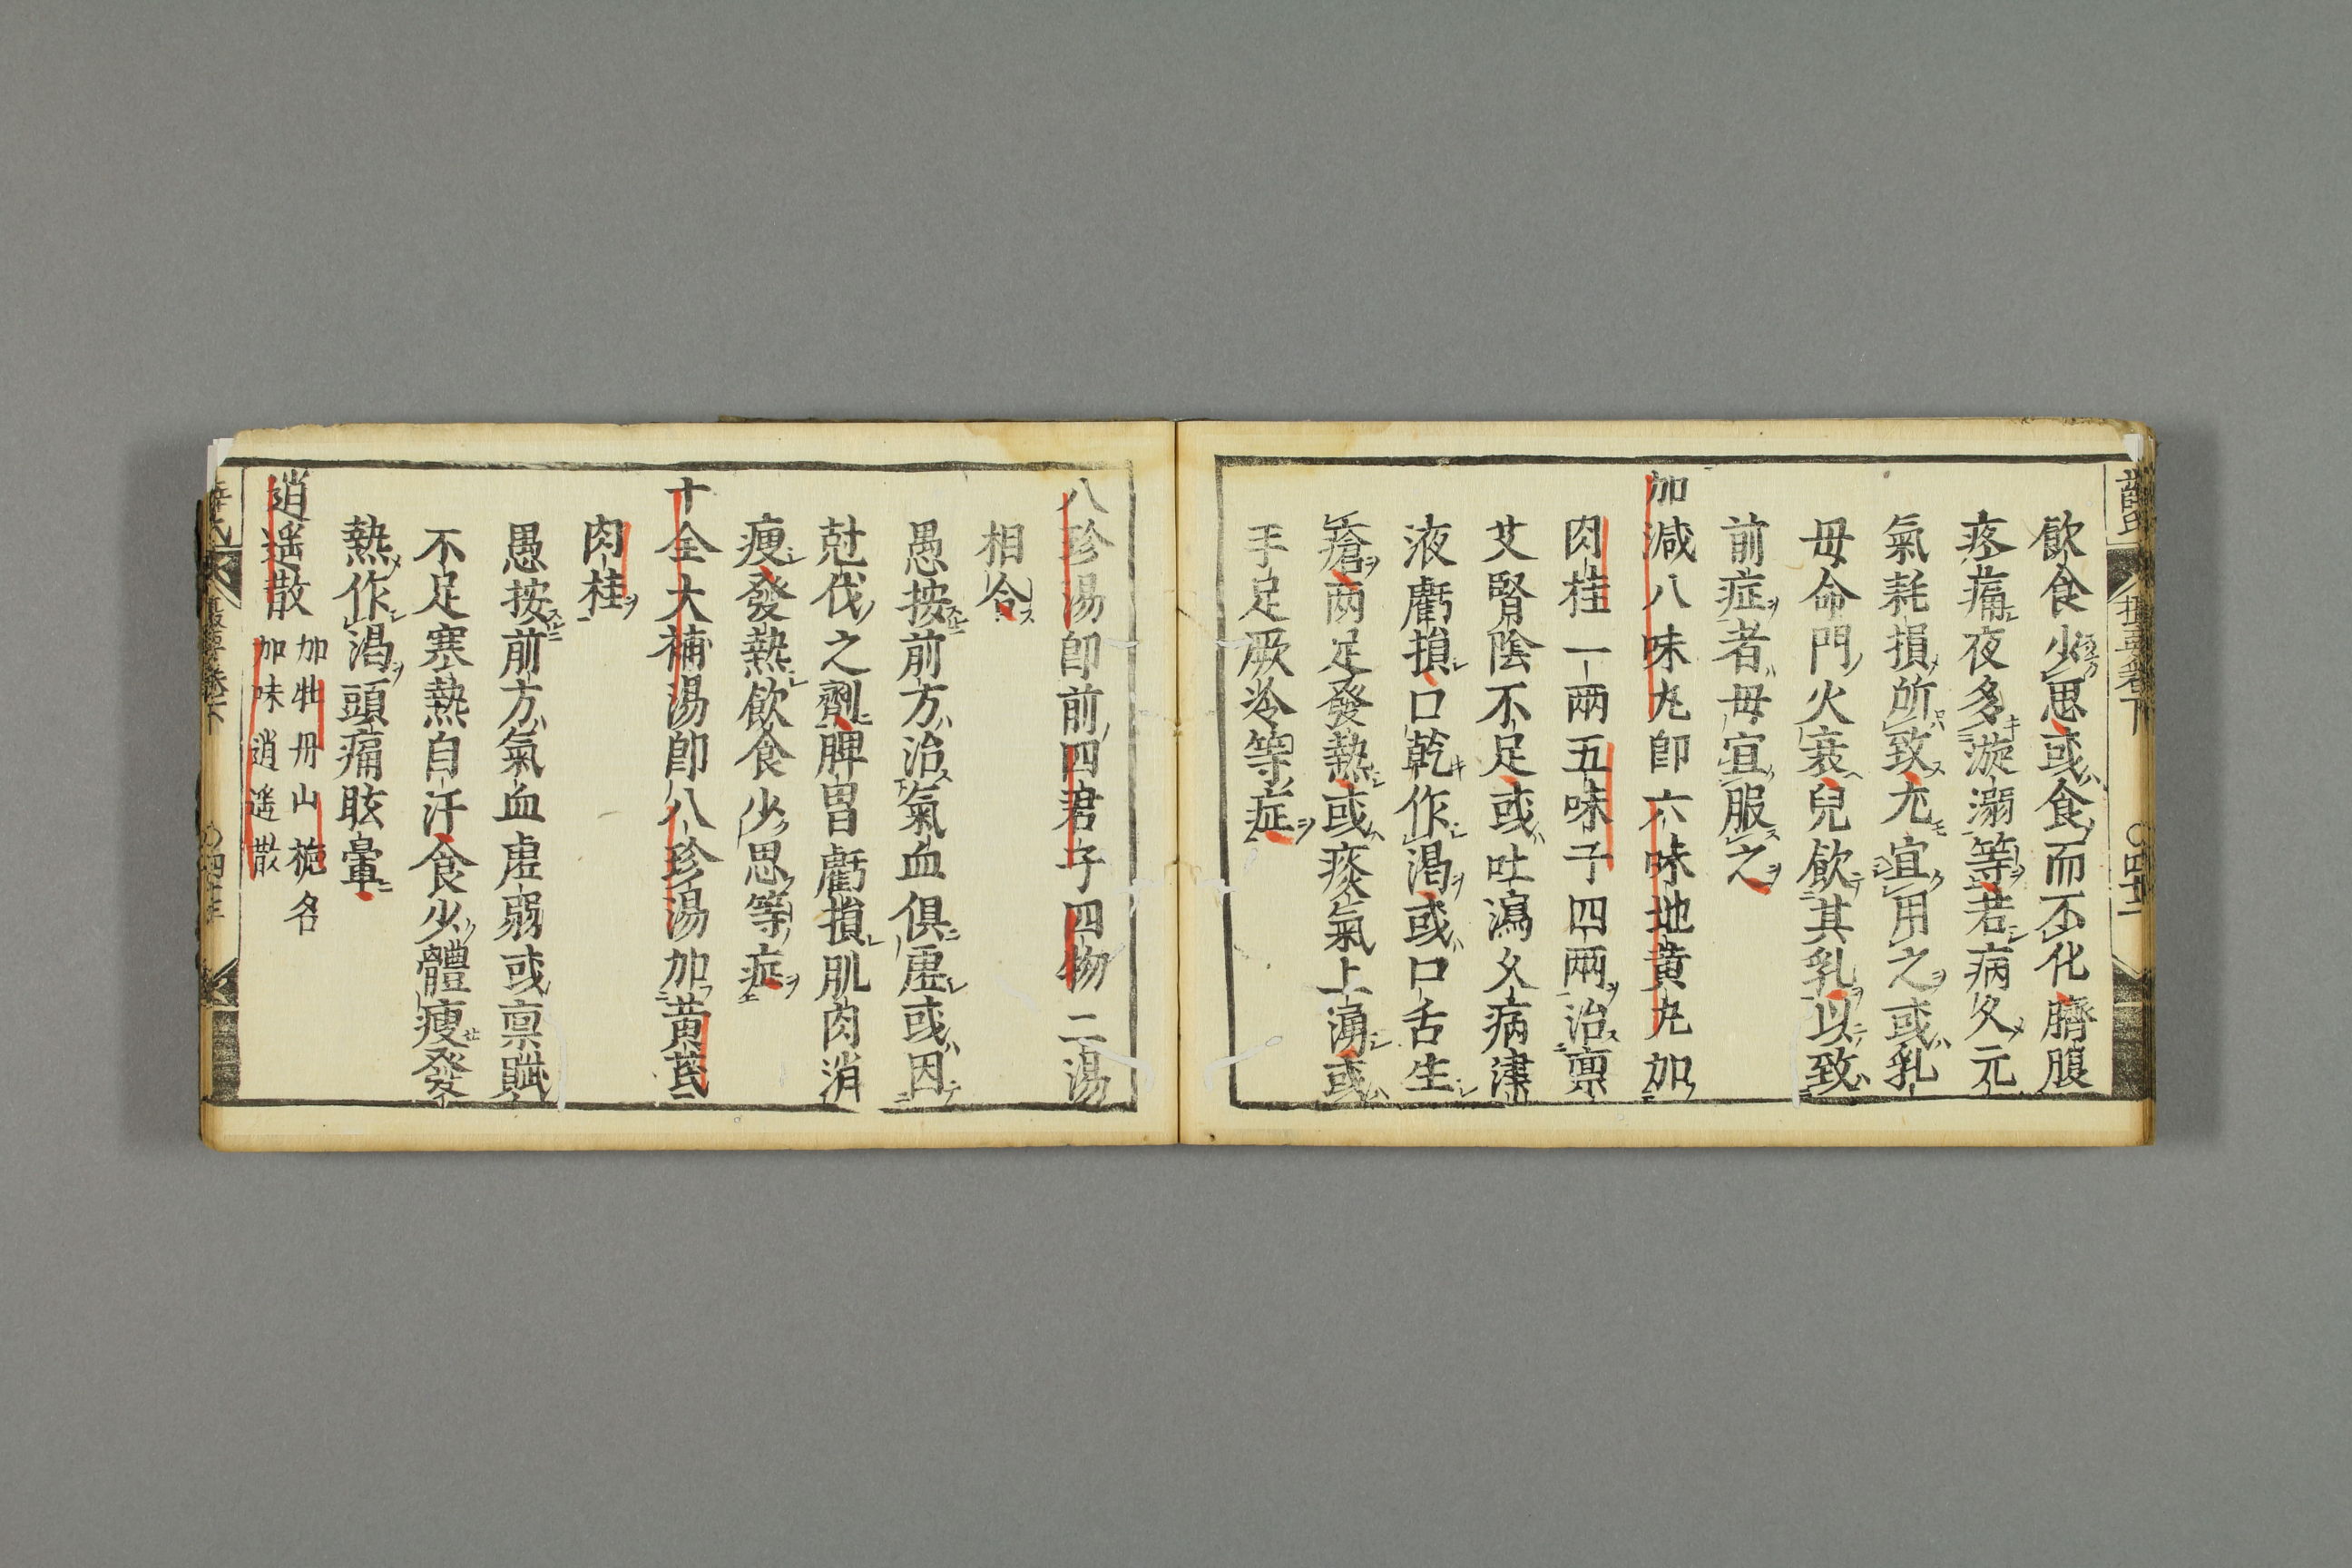 飲食少思或食而不化臍腹
疼痛夜多漩溺等若病久元
氣耗損所致尤宜用之或乳
母命門火衰兒飲其乳以致
前症者母宜服之
加減八味丸即六味地黄丸加
肉桂一兩五味子四兩治禀
艾腎陰不足或吐瀉久病津
液虧損口乾作渴或口舌生
瘡两足發熱或痰氣上湧或
手足厥冷等症
八珍湯即前四君子四物二湯
相合
愚按前方治氣血俱虚或因
尅伐之劑脾胃虧損肌肉消
瘦發熱飲食少思等症
十全大補湯即八珍湯加黄芪
肉桂
愚按前方氣血虚弱或禀賦
不足寒熱自汗食少體瘦發
熱作渴頭痛眩暈
逍遥散
加牡丹山梔名
加味逍遥散